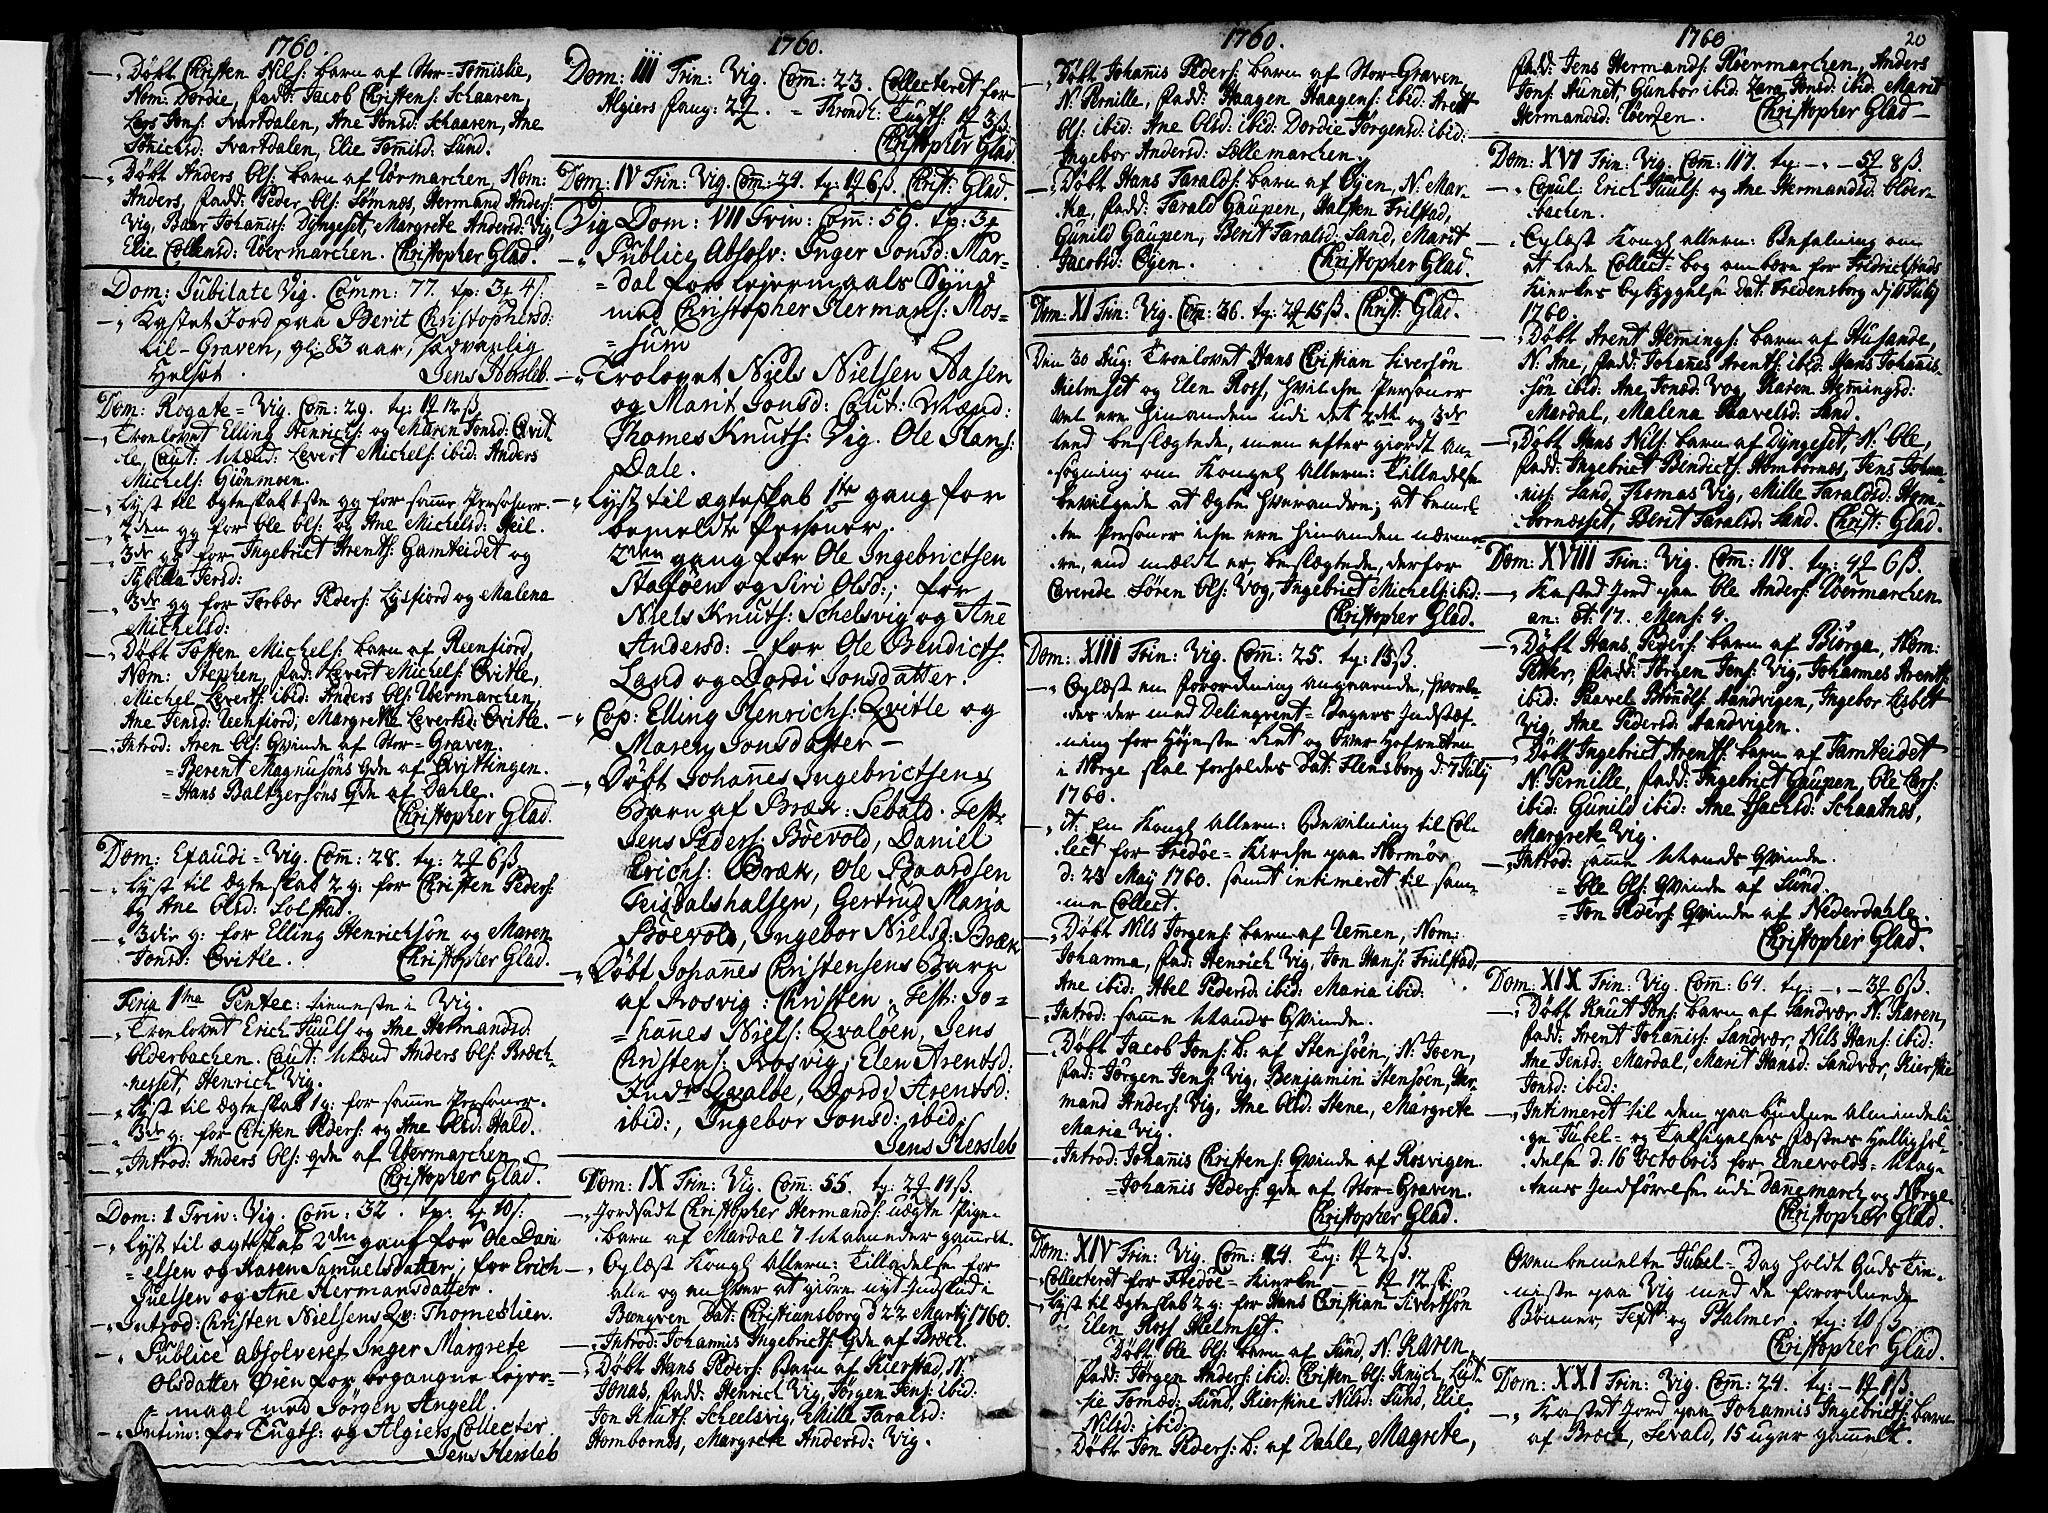 1760.
–„ Døbt Christen Nils: barn af Stor-Tomislie,
Nom: Dordie, fadd: Jacob Christens: Schaaren,
Lars Jons: Svartdalen, Ane Jonsd: Schaaren, Ane
Svartdalen, Elie Tomisd: Sund.
–„ Døbt Anders Ols: barn af Uørmarchen, Nom:
Anders, fadd: Peder Ols: Sømnæs, Hermand Anders:
Vig, Baar Johannis: Dyngeset, Margrete Andersd: Vig,
Elie Uørmarchen. Christopher Glad.
Dom: Jubilate Vig. Comm: 77. tp: 3 4 ß:
–„ Kastet Jord paa Berit Christophersd:
Lil-Graven, gl: 83 aar, sædvanlig
Helsot. Jens Hersleb.
Dom: Rogate = Vig. Com: 29. tp: 1 12 ß
–„ Troelovet Elling Henrichs: og Maren Jonsd: Qvit
le, Caut: Mænd: Levert Michels: ibid: Anders
Michels: Giønmoen.
–„ Lyst til ægteskab 1ste g: for samme Personer.
–„ 2den g: for Ole Ols: og Ane Michelsd: Heil.
–„ 3die g: for Ingebrict Arents: Gamteidet og
Sybilla Jensd:
–„ 3die g: for Torbær Peders: Lysfiord og Malena
Michelsd:
–„ Døbt Michels: barn af Reenfiord,
Nom: Stephen, fad: Levert Michels: Qvitle,
Michel Leverts: ibid: Anders Ols: Uørmarchen,
Ane Jensd: Reenfiord, Margrethe Levertsd: Qvitle.
–„ Introd: Aren Ols: Qvinde af Stor-Graven.
= Berent Magnusøns Qde af Qvittingen.
= Hans Baltzersøns Qde af Dahle.
Christopher Glad.
Dom: Exaudi = Vig. Com: 28. tp: 2 6 ß.
–„ Lyst til ægteskab 2 g: for Christen Peders:
og Ane Olsd: Solstad.
–„ 3die g: for Elling Henrichsøn og Maren
Jonsd: Qvitle. Christopher Glad.
Feria 1ma Pentec: tieneste i Vig.
–„ Troelovet Erich Juuls: og Ane Hermandsd:
Olderbachen. Caut: Mænd Anders Ols: Bræch-
nesset, Henrich Vig.
–„ Lyst til ægteskab 1 g: for samme Personer.
–„ 3die g: for Christen Peders: og Ane Olsd: Hald.
–„ Introd: Anders Ols: qde af Uørmarchen.
Christopher Glad.
Dom: 1 Trin: Vig. Comm: 32. tp: 4 10 ß:
–„ Lyst til ægteskab 2den gang for Ole Dani
elsen og Karen Samuelsdatter, for Erich
Juelsen og Ane Hermansdatter.
–„ Introd: Christen Nielsens Qv: Thomeslien.
–„ Publicè absolveret Inger Margrete
Olsdatter Øien for begangne Lejer-
= maal med Jørgen Angell.
–„ Intim: for Tugts: og Algiers Collecter
Jens Hersleb
1760.
Dom: III Trin: Vig. Com: 23. Collecteret for
Algiers fang: 2. = Trondh: Tugth: 1 3 ß:
Christopher Glad.
Dom: IV Trin: Vig. Com: 24. tp: 1 6 ß. Christ: Glad.
Vig Dom: VII Trin: Com: 56. tp: 3
–„ Publicè Absolv: Inger Jonsd: Mar-
= dal for Lejermaals Synd
med Christopher Hermans: Mos-
= sum
–„ Trolovet Niels Nielsen Aasen
og Marit Jonsd: Caut: Mænd:
Thomes Knuts: Vig. Ole Hans:
Dale.
–„ Lyst til ægteskab 1ste gang for
bemeldte Personer.
2den gang for Ole Ingebrictsen
Staløen og Siri Olsd:, for
Niels Knuts: Schelsvig og Ane
Andersd: – for Ole Bendicts:
Land og Dordi Jonsdatter.
–„ Cop: Elling Henrichs: Qvitle og
Maren Jonsdatter –
–„ Døbt Johannes Ingebrictsens
Barn af Bræk: Sebald. Test:
Jens Peders: Bøevold, Daniel
Erichs: Bræk, Ole Baardsen
Teisdalshalsen, Gertrud Maria
Bøevold, Ingebor Nielsd: Bræk
–„ Døbt Johannes Christensens Barn
af Rosvig: Christen. Test: Jo-
= hannes Niels: Qvaløen, Jens
Christens: Rosvig, Elen Arentsd:
Indr Qvaløe, Dordi Arentsd:
ibid:, Ingebor Jonsd: ibid:
Jens Hersleb
Dom: IX Trin: Vig. Com: 55. tp: 2 14 ß.
–„ Jordsadt Christopher Hermands: uægte Pige-
barn af Mardal 7 Maaneder gammelt.
–„ Oplæst Kongl. Allern: Tilladelse for
alle og enhver at giøre nyt Indskud i
Banqven Dat: Christiansborg d 22 Martij 1760.
–„ Introd: Johannis Ingebricts: Qde af Bræch.
–„ Døbt Hans Peders: Barn af Kierstad, N:
Jonas, fadd: Henrich Vig, Jørgen Jens: ibid:
Jon Knuts: Scheelsvig, Mille Taralsd:
Hombornæs, Margrete Andersd: Vig.
1760.
–„ Døbt Johannis Peders: barn af Stor-Graven,
N: Pernille, fadd: Haagen Haagens: ibid: Arent
Ols: ibid: Ane Olsd: ibid: Dordie Jørgensd: ibid:
Ingebor Andersd: Sollemarchen.
–„ Døbt Hans Taralds: barn af Øyen, N: Mar-
ta, fadd: Tarald Gaupen, Halsten Friilstad,
Gunild Gaupen, Berit Taralsd: Sand, Marit
Jacobsd: Øyen. Christopher Glad.
Dom: XI Trin: Vig. Com: 36. tp: 2 15 ß. Christ: Glad.
Den 30 Aug: Troelovet Hans Christian Siversøn
Helmset og Elen Ross, hvilche Personer
vel ere hinanden udi det 2det og 3die
leed beslægtede, men efter giordt an-
søgning om Kongel Allern: Tilladelse
bevilgede at ægte hverandre; at bemel-
te Personer iche ere hinanden nærme-
re, end meldt er, beslægtede, derfor
Caverede Søren Ols: Vog, Ingebrict Michels: ibid:
Christopher Glad.
Dom: XIII Trin: Vig. Com: 25. tp: 15 ß.
–„ Oplæst en Forordning angaaende, hvorle-
des der med Delinqvent-Sagers Indstæf-
ning for Høieste Ret og Over-Hofretten
i Norge skal forholdes Dat: Flensborg d: 7 Julij
1760.
–„ it: En Kongl Allern: Bevilning til Col-
lect for Fredøe = Kirche paa Normør
d: 23 Maij 1760. samt intimeret til sam-
me Collect.
–„ Døbt Nils Jørgens: barn af Uemen, Nom:
Johanna, fad: Henrich Vig, Jon Hans: Friilstad,
Ane ibid: Abel Pedersd: ibid: Maria ibid:
–„ Introd: samme Mands Qvinde.
–„ Døbt Jacob Jons: B: af Stensøen, N: Joen,
fad: Jørgen Jens: Vig, Benjamin Stensøen, Her-
mand Anders: Vig, Ane Olsd: Stene, Margrete
Maria Vig.
–„ Introd: Johannis Christens: Qvinde af Rosvigen.
= Johannis Peders: qde af Stor-Graven.
Christopher Glad.
Dom: XIV Trin: Vig. Com: 24. Tp: 1 2 ß.
–„ Collecteret for Fredøe = Kierke – 1 12 ß:
–„ Lyst til ægteskab 2 g: for Hans Christian Sivertsøn
Elen Ross Helmset.
Døbt Ole Ols: barn af Sund, N: Karen,
fadd: Jørgen Anders: ibid: Christen Ols: Knych, Lys-
sie Tomæd: Sund, Kierstine Nilsd: Sund, Elie
Nilsd: ibid:
Døbt Jon Peders: B: af Dahle, Magrete,
1760
20
fadd: Jens Hermands: Røermarchen, Anders
Jons: Aunet, Gunbor ibid: Zara Jonsd: ibid: Marit
Hermandsd: Uerzen. Christopher Glad –
Dom: XVI Trin: Vig. Com: 117. tp: –„– 5 8 ß
–„ Copul: Erich Juuls: og Ane Hermandsd: Older-
bachen.
–„ Oplæst Kongl allern: Befalning om
at lade Collect-bog ombære for Fridrichstads
Kierkes Opbyggelse Dat: Fredensborg d: 11 Julij
1760.
–„ Døbt Arent Hemings: barn af Husande,
N: Ane, fadd: Johannes Arents: ibid: Hans Johannis-
søn ibid: Ane Jonsd: Vog, Karen Hemingsd:
Mardal, Malena Paavelsd: Sand.
–„ Døbt Hans Nils: barn af Dyngeset, N: Ole,
fadd: Ingebrict Bendicts: Hombornæs, Jens Johan-
nis: Sand, Thomas Vig, Mille Taraldsd: Hom-
bornæsset, Berit Taralsd: Sand. Christ: Glad.
Dom: XVIII Trin: Vig. Com: 118. tp: 4 6 ß.
–„ Kasted Jord paa Ole Anders: Uørmarchen
an: æt: 17. Mens: 4.
–„ Døbt Hans Peders: barn af Biørga, Nom:
Petter, fadd: Jørgen Jens: Vig, Johannes Arents:
ibid: Paavel Sandvigen, Ingebor Lisbet
Vig, Ane Pedersd: Sandvigen.
–„ Døbt Ingebrict Arents: barn af Tamteidet
N: Pernille, fadd: Ingebrict Gaupen, Ole Lars:
ibid: Gunild ibid: Ane Schaatnæs,
Margrete Vig.
–„ Introd: samme Mands Qvinde.
= Ole Ols: Qvinde af Sund.
= Jon Peders: Qvinde af Nederdahle.
Christopher Glad.
Dom: XIX Trin: Vig. Com: 64. tp: –„– 3 6 ß.
–„ Døbt Knut Jons: barn af Sandvær, N: Karen,
fadd: Arent Johanis: Sandvær, Nils Hans: ibid:
Ane Jensd: Mardal, Marit Hansd: Sandvær, Kierstie
Jonsd: ibid:
–„ Intimeret til den paabudne almindeli-
ge Jubel- og Taksigelses Festes Hellighol-
delse d: 16 Octobris for Enevolds-Mag-
tens Indførelse udi Dannemarch og Norge
Christopher Glad.
Ovenbemelte Jubel-Dag holdt Guds Tie-
niste paa Vig med de forordnede
Bønner, Text og Psalmer. tp: 10 ß.
Christopher Glad.
Dom: XXI Trin: Vig. Com: 24. tp: – 1 1 ß.
–„ Kastet Jord paa Johannis Ingebricts: barn
af Bræch, Sevald, 15 uger gammelt.